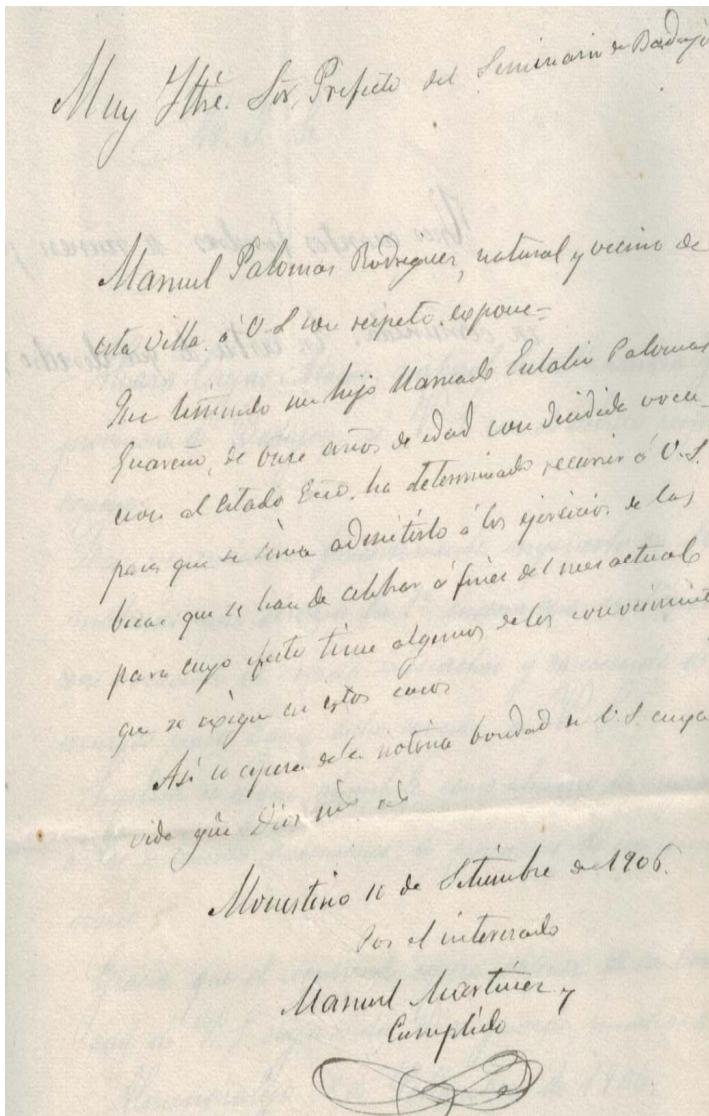 Muy Iltre. Sor. Prefecto del Seminario de Badajo
Manuel Palomas Rodriguez, natural y vecino de
esta villa. á V. S con respeto. expone=
Que teniendo un hijo llamado Eulalio Palomas
Guareño, de once años de edad con decidida voca-
cion al estado Ecco. ha determinado recurrir á V. S.
para que se sirva admitirlo á los ejercicios de las
becas que se han de celebrar á fines del mes actual
para cuyo efecto tiene algunos de los conocimient
que se exigen en estos casos
Así lo espera de la notoria bondad de V. S. cuya
vida gûe Dios ms. as
Monesterio 10 de Setiembre de 1906.
Por el interesado
Manuel Martinez y
Cumplido